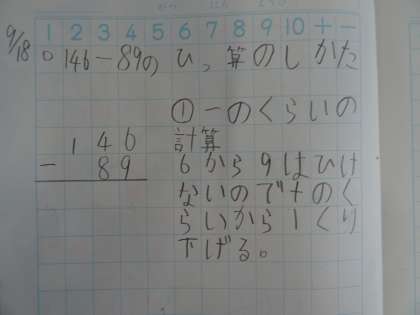 1 2 3 4 5 6 7 8 9 10 + −
9/18
○146−89のひっ算のしかた
①一のくらいの
計算
146
− 89
6から9はひけ
ないので十のく
らいから1くり
下げる。